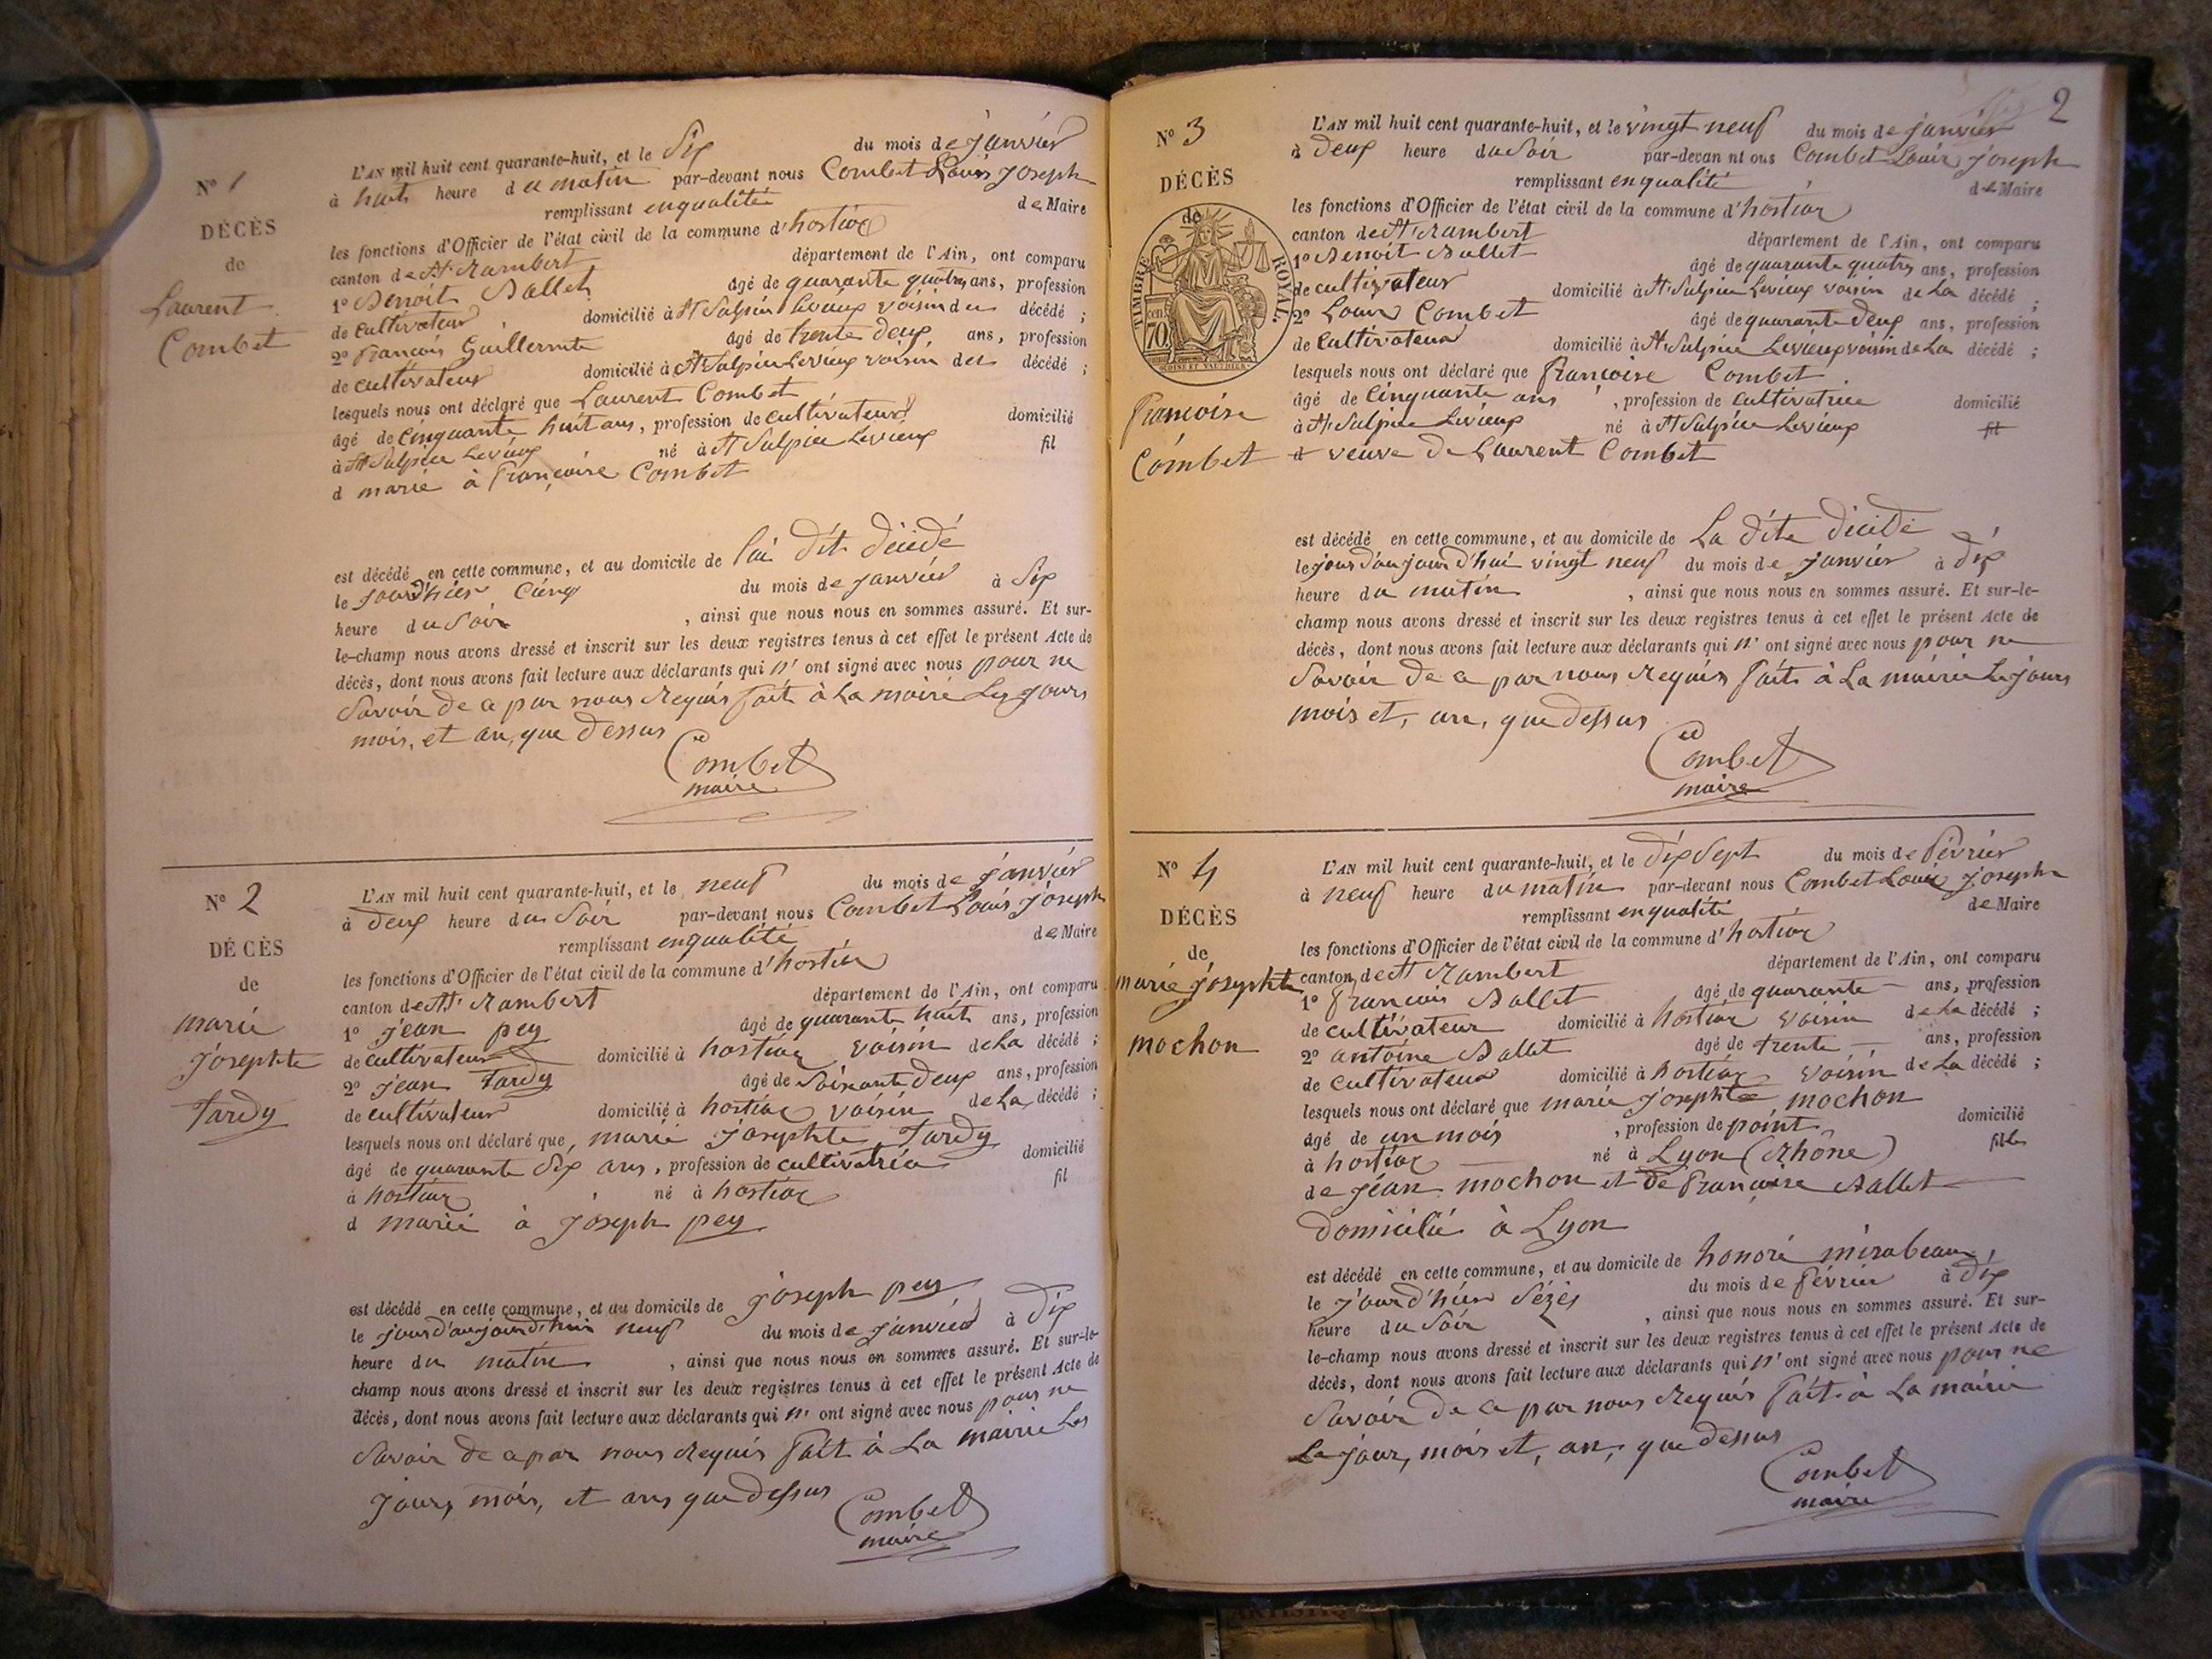 Nº 1
DÉCÈS
de
Laurent
Combet
L'AN mil huit cent quarante-huit, et le Six du mois de janvier
à huit heure du matin par-devant nous Combet Louis joseph
remplissant enqualitée de Maire
les fonctions d'Officier de l'état civil de la commune d'hostiaz
canton de St Rambert département de l'Ain, ont comparu
1º Benoit Ballet âgé de quarante quatre ans, profession
de cultivateur domicilié à St Sulpice levieux voisin du décédé ;
2º François Guillermte âgé de trente deux ans, profession
de cultivateur domicilié à St Sulpice Levieux voisin du décédé ;
lesquels nous ont déclaré que Laurent Combet
âgé de Cinquante huit ans, profession de cultivateur domicilié
à St Sulpice Levieux né à St Sulpice Levieux fil
d marié à Françoise Combet
est décédé en cette commune, et au domicile de lui dit décédé
le jour d'hier Cinq du mois de janvier à Six
heure du Soir , ainsi que nous nous en sommes assuré. Et sur-
le-champ nous avons dressé et inscrit sur les deux registres tenus à cet effet le présent Acte de
décès, dont nous avons fait lecture aux déclarants qui n' ont signé avec nous pour ne
Savoir de ce par nous Requis fait à La mairie Les jours
mois, et an, que dessus
Combet
maire
Nº 2
DÉCÈS
de
marie
josephte
Tardy
L'AN mil huit cent quarante-huit, et le neuf du mois de janvier
à deux heure du Soir par-devant nous Combet Louis joseph
remplissant enqualité de Maire
les fonctions d'Officier de l'état civil de la commune d'hostiaz
canton de St Rambert département de l'Ain, ont comparu
1º jean pey âgé de quarante huit ans, profession
de cultivateur domicilié à hostiaz voisin de La décédé ;
2º jean Tardy âgé de Soixante deux ans, profession
de cultivateur domicilié à hostiaz voisin de La décédé ;
lesquels nous ont déclaré que marie josephte Tardy
âgé de quarante Six ans, profession de cultivatrice domicilié
à hostiaz né à hostiaz fil
d marié à joseph pey
est décédé en cette commune, et au domicile de joseph pey
le jour d'aujourd'hui neuf du mois de janvier à dix
heure du matin , ainsi que nous nous en sommes assuré. Et sur-le-
champ nous avons dressé et inscrit sur les deux registres tenus à cet effet le présent Acte de
décès, dont nous avons fait lecture aux déclarants qui n' ont signé avec nous pour ne
Savoir de ce par nous Requis fait à La mairie Les
jours, mois, et ans que dessus
Combet
maire
2
Nº 3
DÉCÈS
de
TIMBRE ROYAL.
70
Francoise
Combet
L'AN mil huit cent quarante-huit, et le vingt neuf du mois de janvier
à deux heure du Soir par-devan nt ous Combet Louis joseph
remplissant enqualité de Maire
les fonctions d'Officier de l'état civil de la commune d'hostiaz
canton de St Rambert département de l'Ain, ont comparu
1º Benoit Ballet âgé de quarante quatre ans, profession
de cultivateur domicilié à St Sulpice Levieux voisin de La décédé ;
2º Louis Combet âgé de quarante deux ans, profession
de Cultivateur domicilié à St Sulpice Levieux voisin de La décédé ;
lesquels nous ont déclaré que françoise Combet
âgé de Cinquante ans , profession de Cultivatrice domicilié
à St Sulpice Levieux né à St Sulpice Levieux fil
d veuve de Laurent Combet
est décédé en cette commune, et au domicile de La dite décédé
le jour d'aujourd'hui vingt neuf du mois de janvier à dix
heure du matin , ainsi que nous nous en sommes assuré. Et sur-le-
champ nous avons dressé et inscrit sur les deux registres tenus à cet effet le présent Acte de
décès, dont nous avons fait lecture aux déclarants qui n' ont signé avec nous pour ne
Savoir de ce par nous Requis fait à La mairie Le jours
mois et, an, que dessus
Combet
maire
Nº 4
DÉCÈS
de
marie josephte
mochon
L'AN mil huit cent quarante-huit, et le dix Sept du mois de février
à neuf heure du matin par-devant nous Combet Louis joseph
remplissant enqualité de Maire
les fonctions d'Officier de l'état civil de la commune d'hostiaz
canton de St Rambert département de l'Ain, ont comparu
1º François Ballet âgé de quarante ans, profession
de cultivateur domicilié à hostiaz voisin de La décédé ;
2º antoine Ballet âgé de trente ans, profession
de cultivateur domicilié à hostiaz voisin de La décédé ;
lesquels nous ont déclaré que marie josephte mochon
âgé de un mois , profession de point domicilié
à hostiaz né à Lyon (Rhône) fille
de jean mochon et de Françoise Ballet
domicilié à Lyon
est décédé en cette commune, et au domicile de honoré mirabeau
le jour d'hier Sézes du mois de février à dix
heure du Soir , ainsi que nous nous en sommes assuré. Et sur-
le-champ nous avons dressé et inscrit sur les deux registres tenus à cet effet le présent Acte de
décès, dont nous avons fait lecture aux déclarants qui n' ont signé avec nous pour ne
Savoir de ce par nous Requis fait à La mairie
Le jour, mois et, an, que dessus
Combet
maire